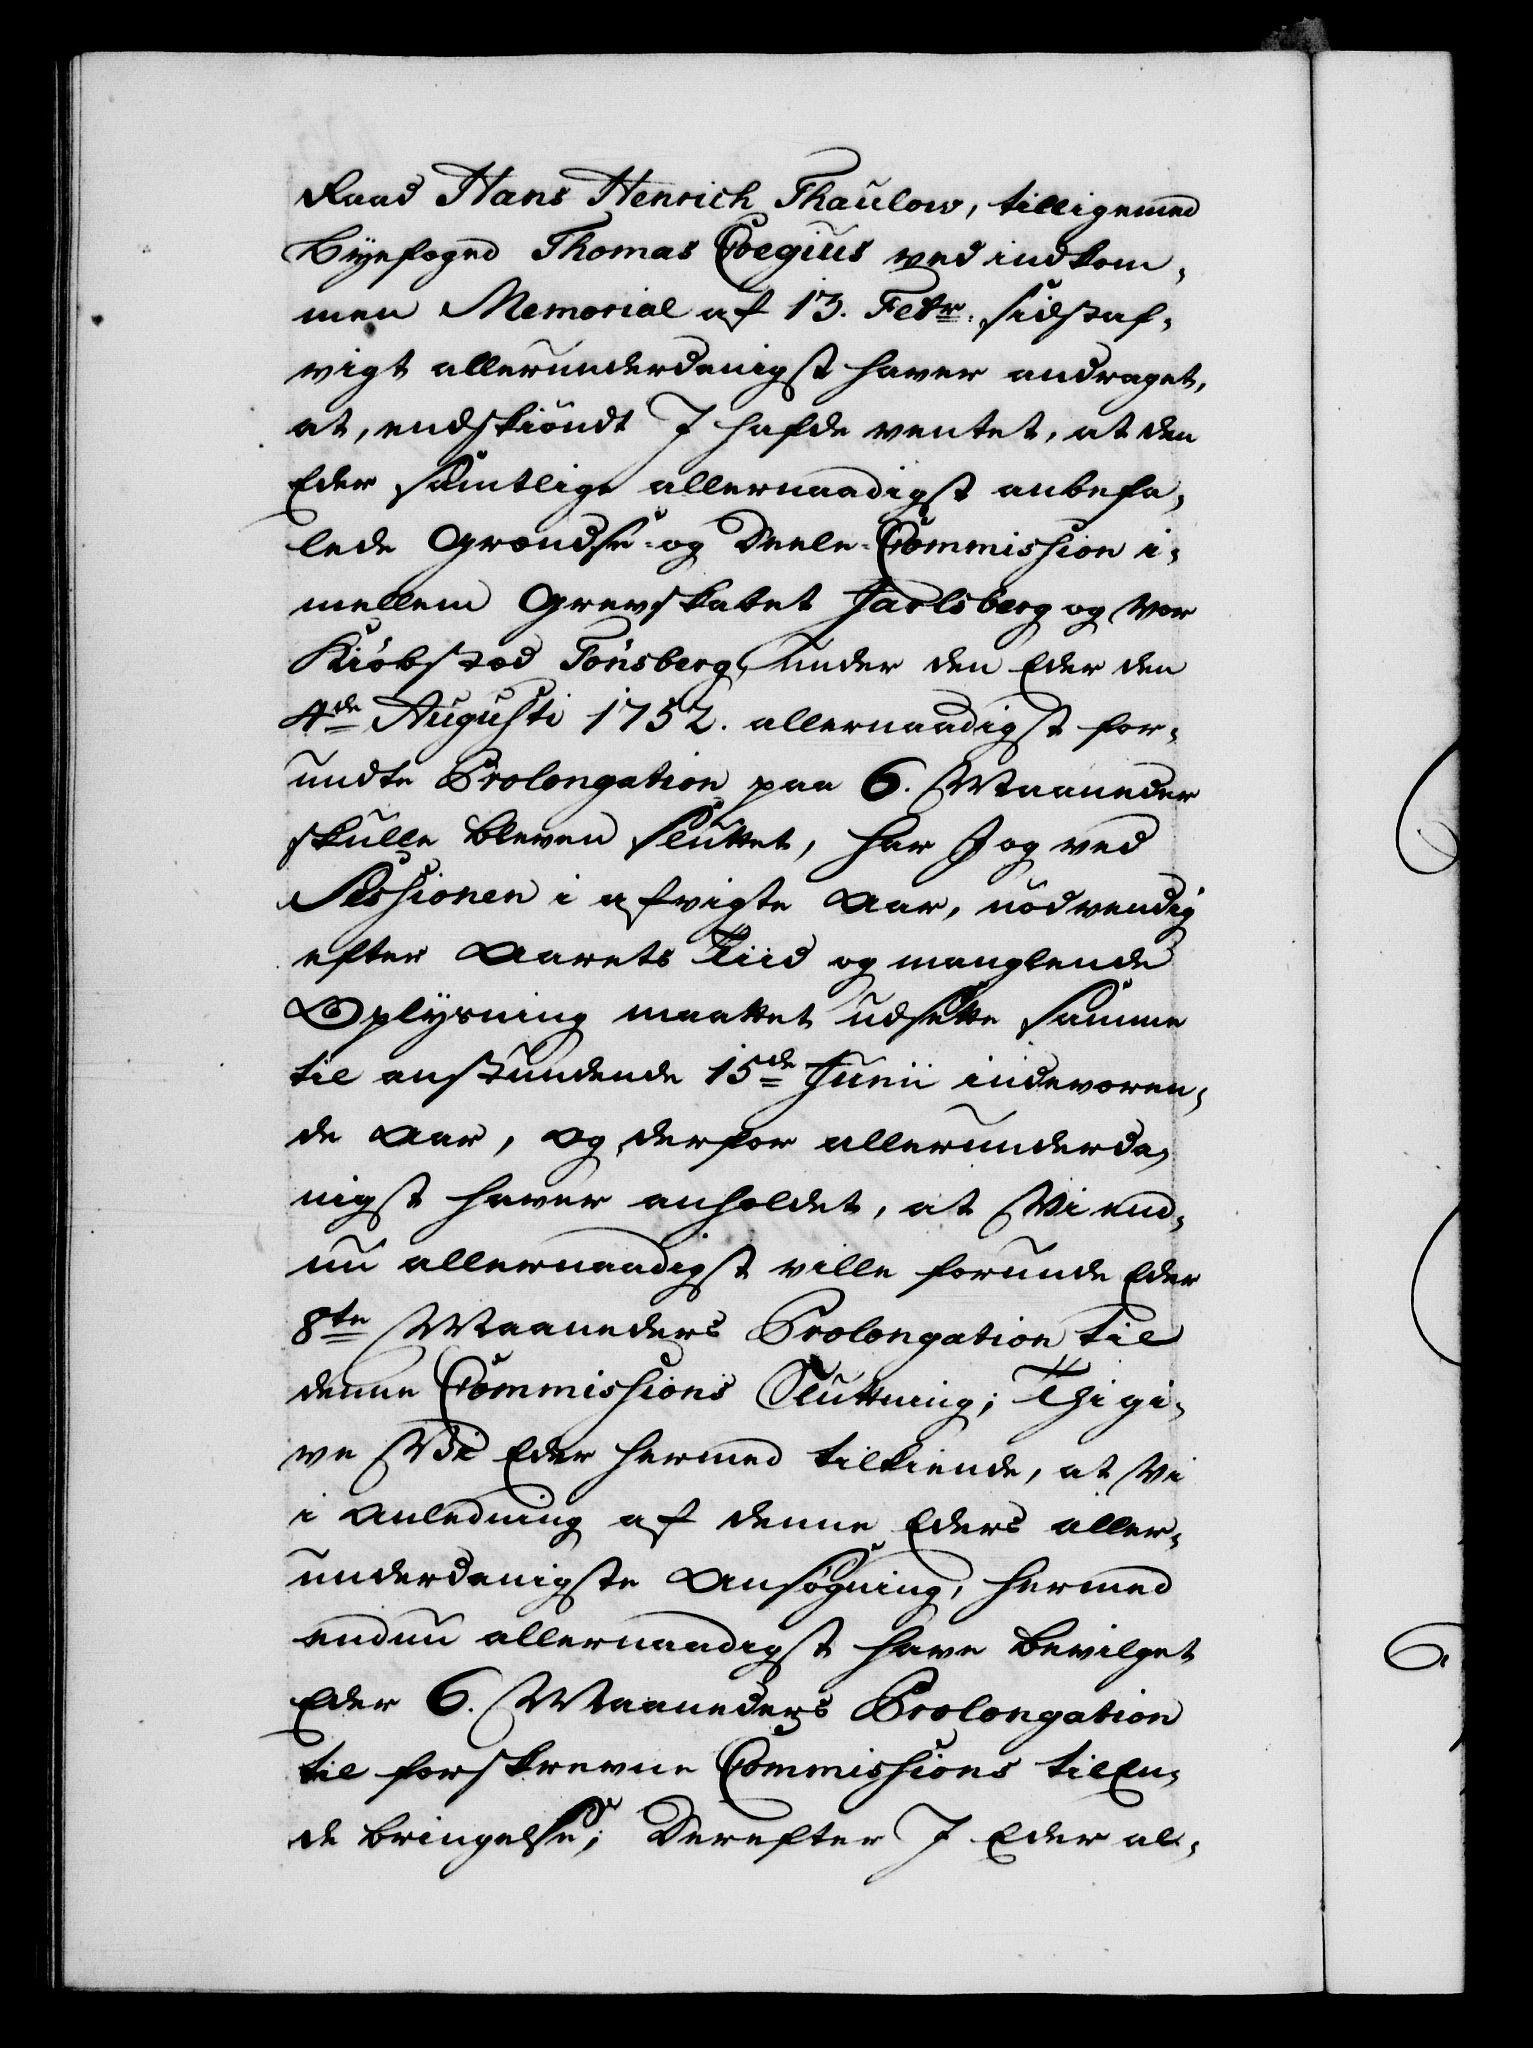 Raad Hans Henrich Thaulow, tilligemed
Byefoged Thomas Coegius ved indkom¬
men Memorial af 13. Febr. sidstaf¬
vigt allerunderdanigst haver andraget,
at, endskiöndt I hafde ventet, at den
Eder samtlige allernaadigst anbefa¬
lede Grændse- og Deele-Commission i¬
mellem Grevskabet Jarlsberg og Vor
Kiöbstad Tönsberg, under den Eder den
4de Augusti 1752. allernaadigst for¬
undte Prolongation paa 6. Maaneder
skulle bleven sluttet, har I og ved
Sessionen i afvigte Aar, nödvendig
efter Aarets Tiid og manglende
Oplysning maattet udsette samme
til anstundende 15de Junii indeværen¬
de Aar, og derfor allerunderda¬
nigst haver anholdet, at Vi end¬
nu allernaadigst ville forunde Eder
8te Maaneders Prolongation til
denne Commissions Sluttning; Thi gi¬
ve Vi Eder hermed tilkiende, at Vi
i Anledning af denne Eders aller¬
underdanigste Ansögning, hermed
endnu allernaadigst have bevilget
Eder 6. Maaneders Prolongation
til forskrevne Commissions tilEn¬
de bringelse; Derefter I Eder al¬